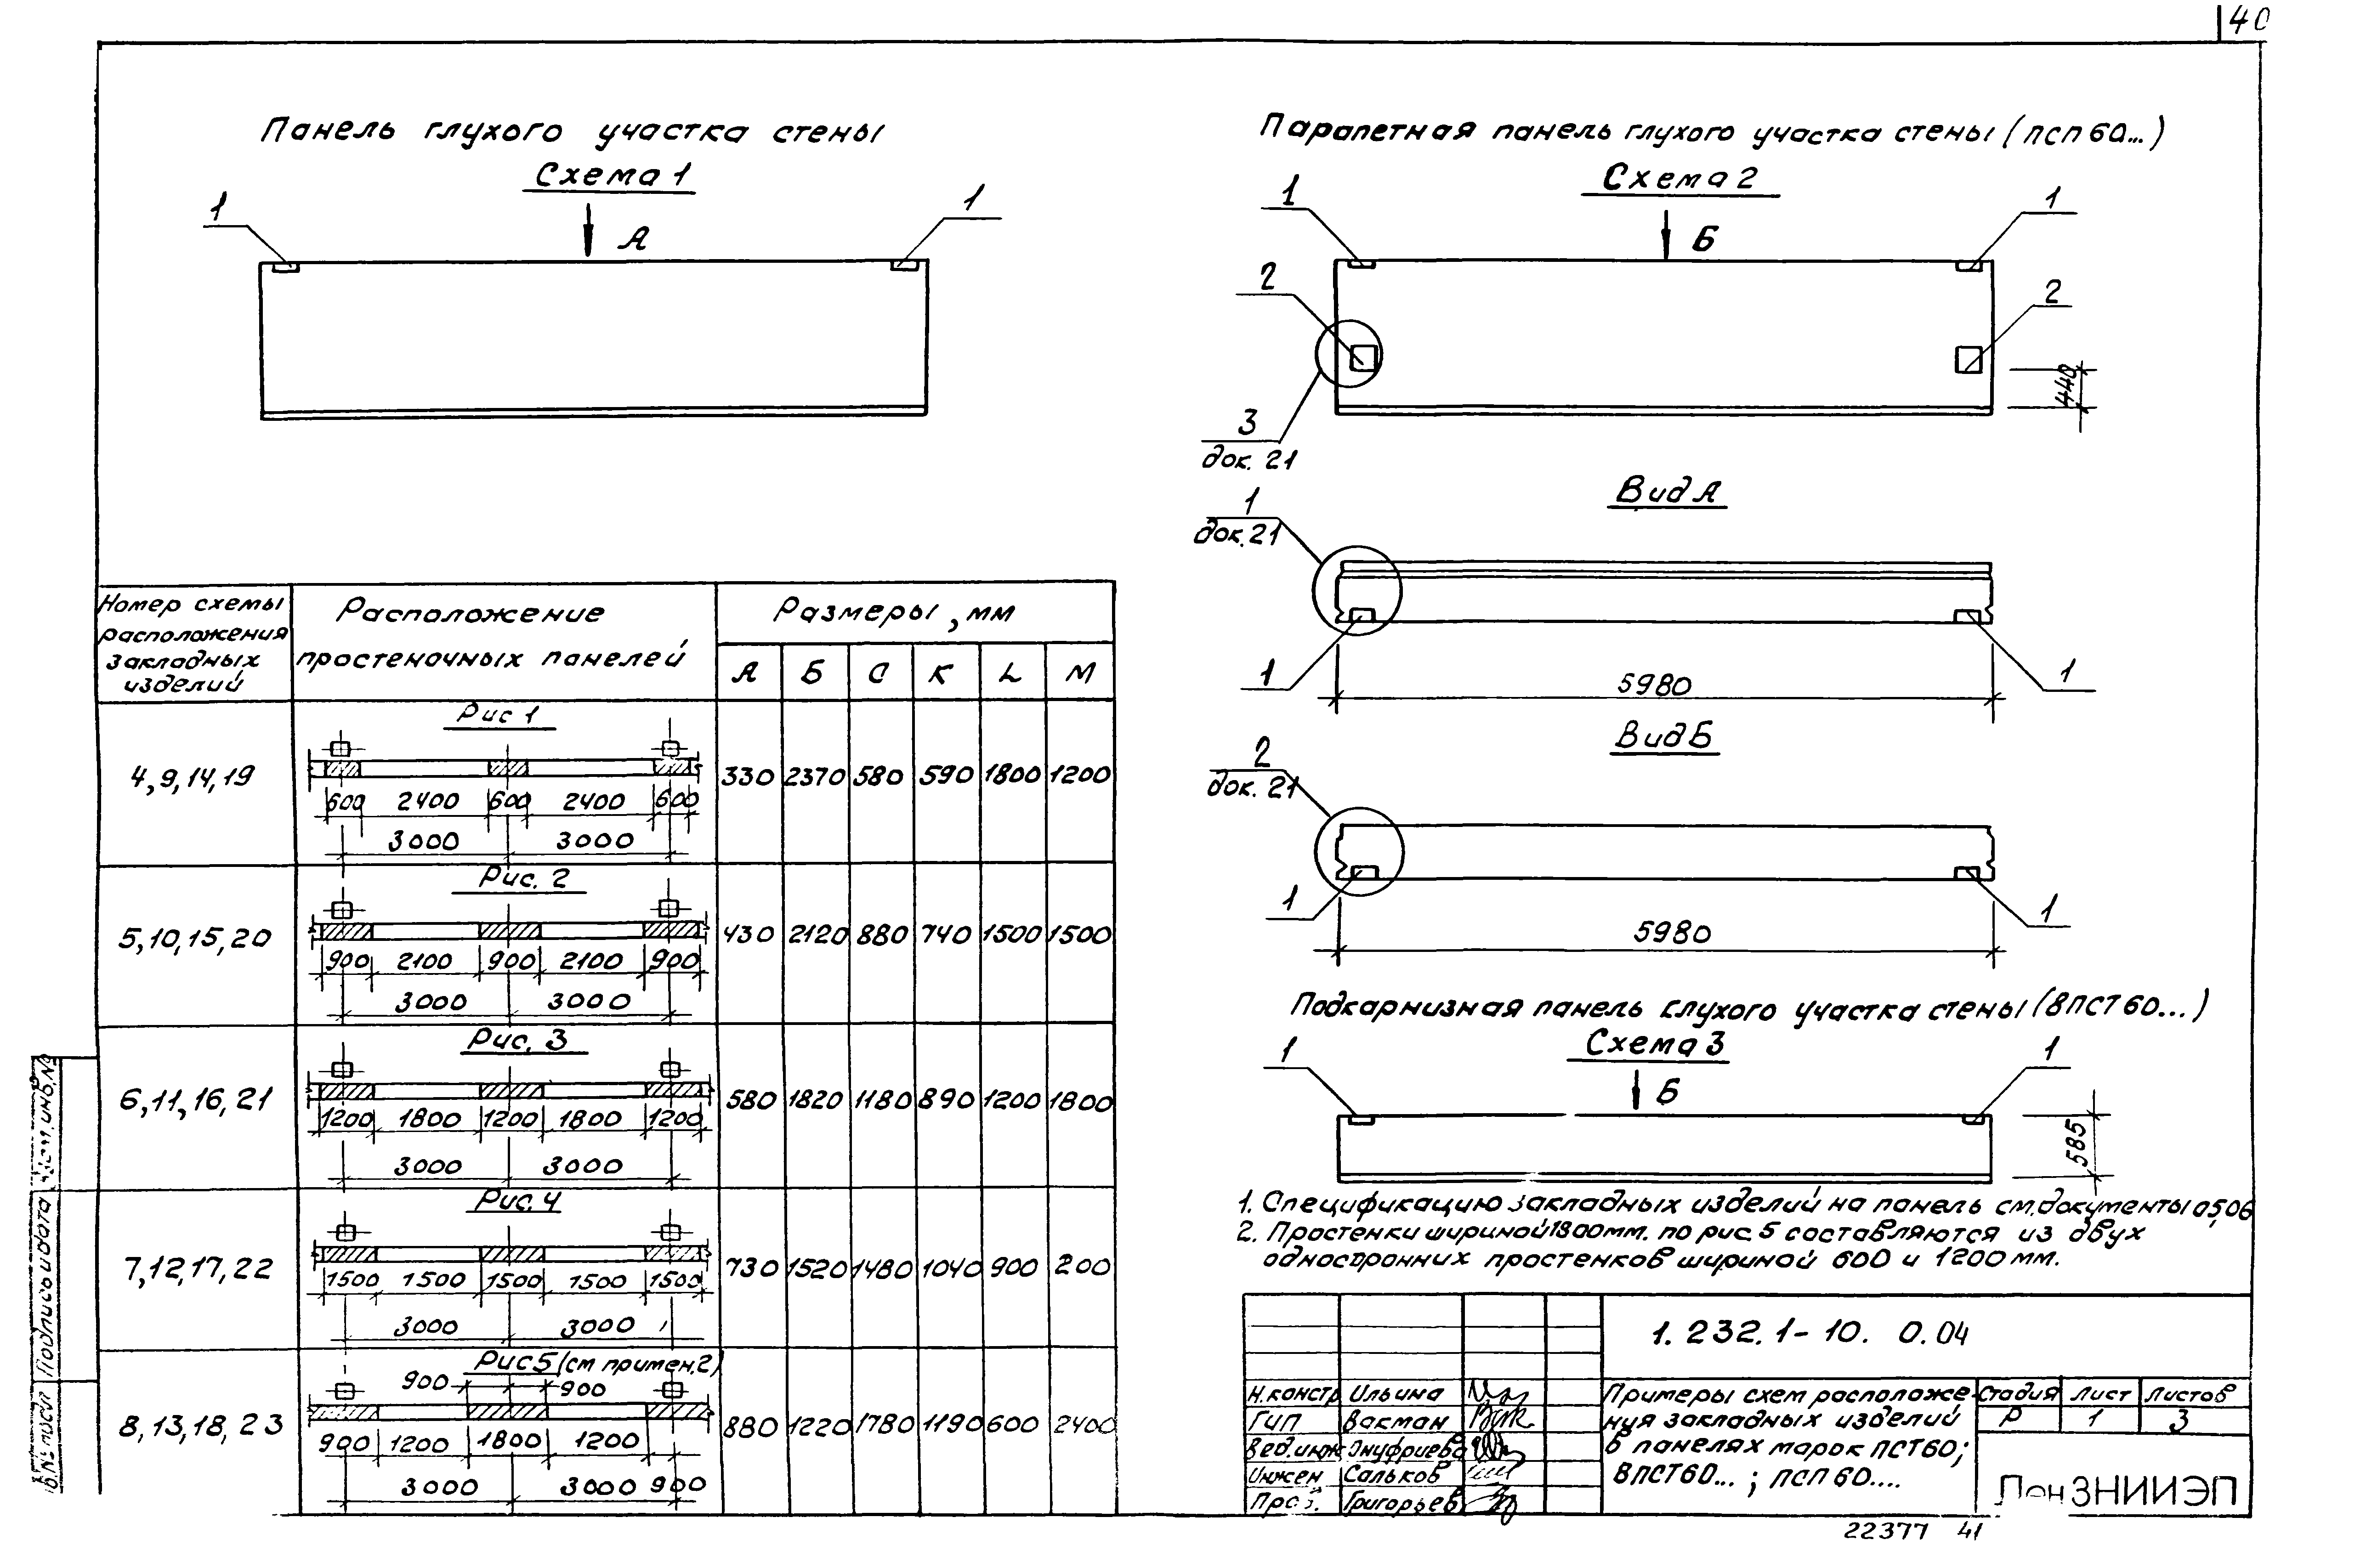 40
Панель глухого участка стены
Схема 1
1
1
А
Парапетная панель глухого участка стены (ПСП 60...)
Схема 2
1
1
Б
2
2
440
3
док. 21
Вид А
1
док. 21
1
1
5980
Вид Б
2
док. 21
1
1
5980
Подкарнизная панель глухого участка стены (8ПСТ60...)
Схема 3
1
1
Б
585
1. Спецификацию закладных изделий на панель см. документы 05,06
2. Простенки шириной 1800 мм. по рис. 5 составляются из двух
односторонних простенков шириной 600 и 1200 мм.
Номер схемы расположения закладных изделий
Расположение простеночных панелей
Размеры, мм
А Б С К L М
Рис 1
4, 9, 14, 19
600 2400 600 2400 600
3000 3000
330 2370 580 590 1800 1200
Рис. 2
5, 10, 15, 20
900 2100 900 2100 900
3000 3000
430 2120 880 740 1500 1500
Рис. 3
6, 11, 16, 21
1200 1800 1200 1800 1200
3000 3000
580 1820 1180 890 1200 1800
Рис. 4
7, 12, 17, 22
1500 1500 1500 1500 1500
3000 3000
730 1520 1480 1040 900 200
Рис 5 (см примеч. 2)
900 900
8, 13, 18, 23
900 1200 1800 1200
3000 3000 900
880 1220 1780 1190 600 2400
1.232.1-10. 0.04
Н.констр Ильина
ГИП Вакман
Вед.инж Онуфриева
Инжен Сальков
Григорьев
Примеры схем расположе-
ния закладных изделий
в панелях марок ПСТ60;
8ПСТ60...; ПСП 60....
Стадия Лист Листов
Р 1 3
ЛенЗНИИЭП
22377 41
Подпись и дата